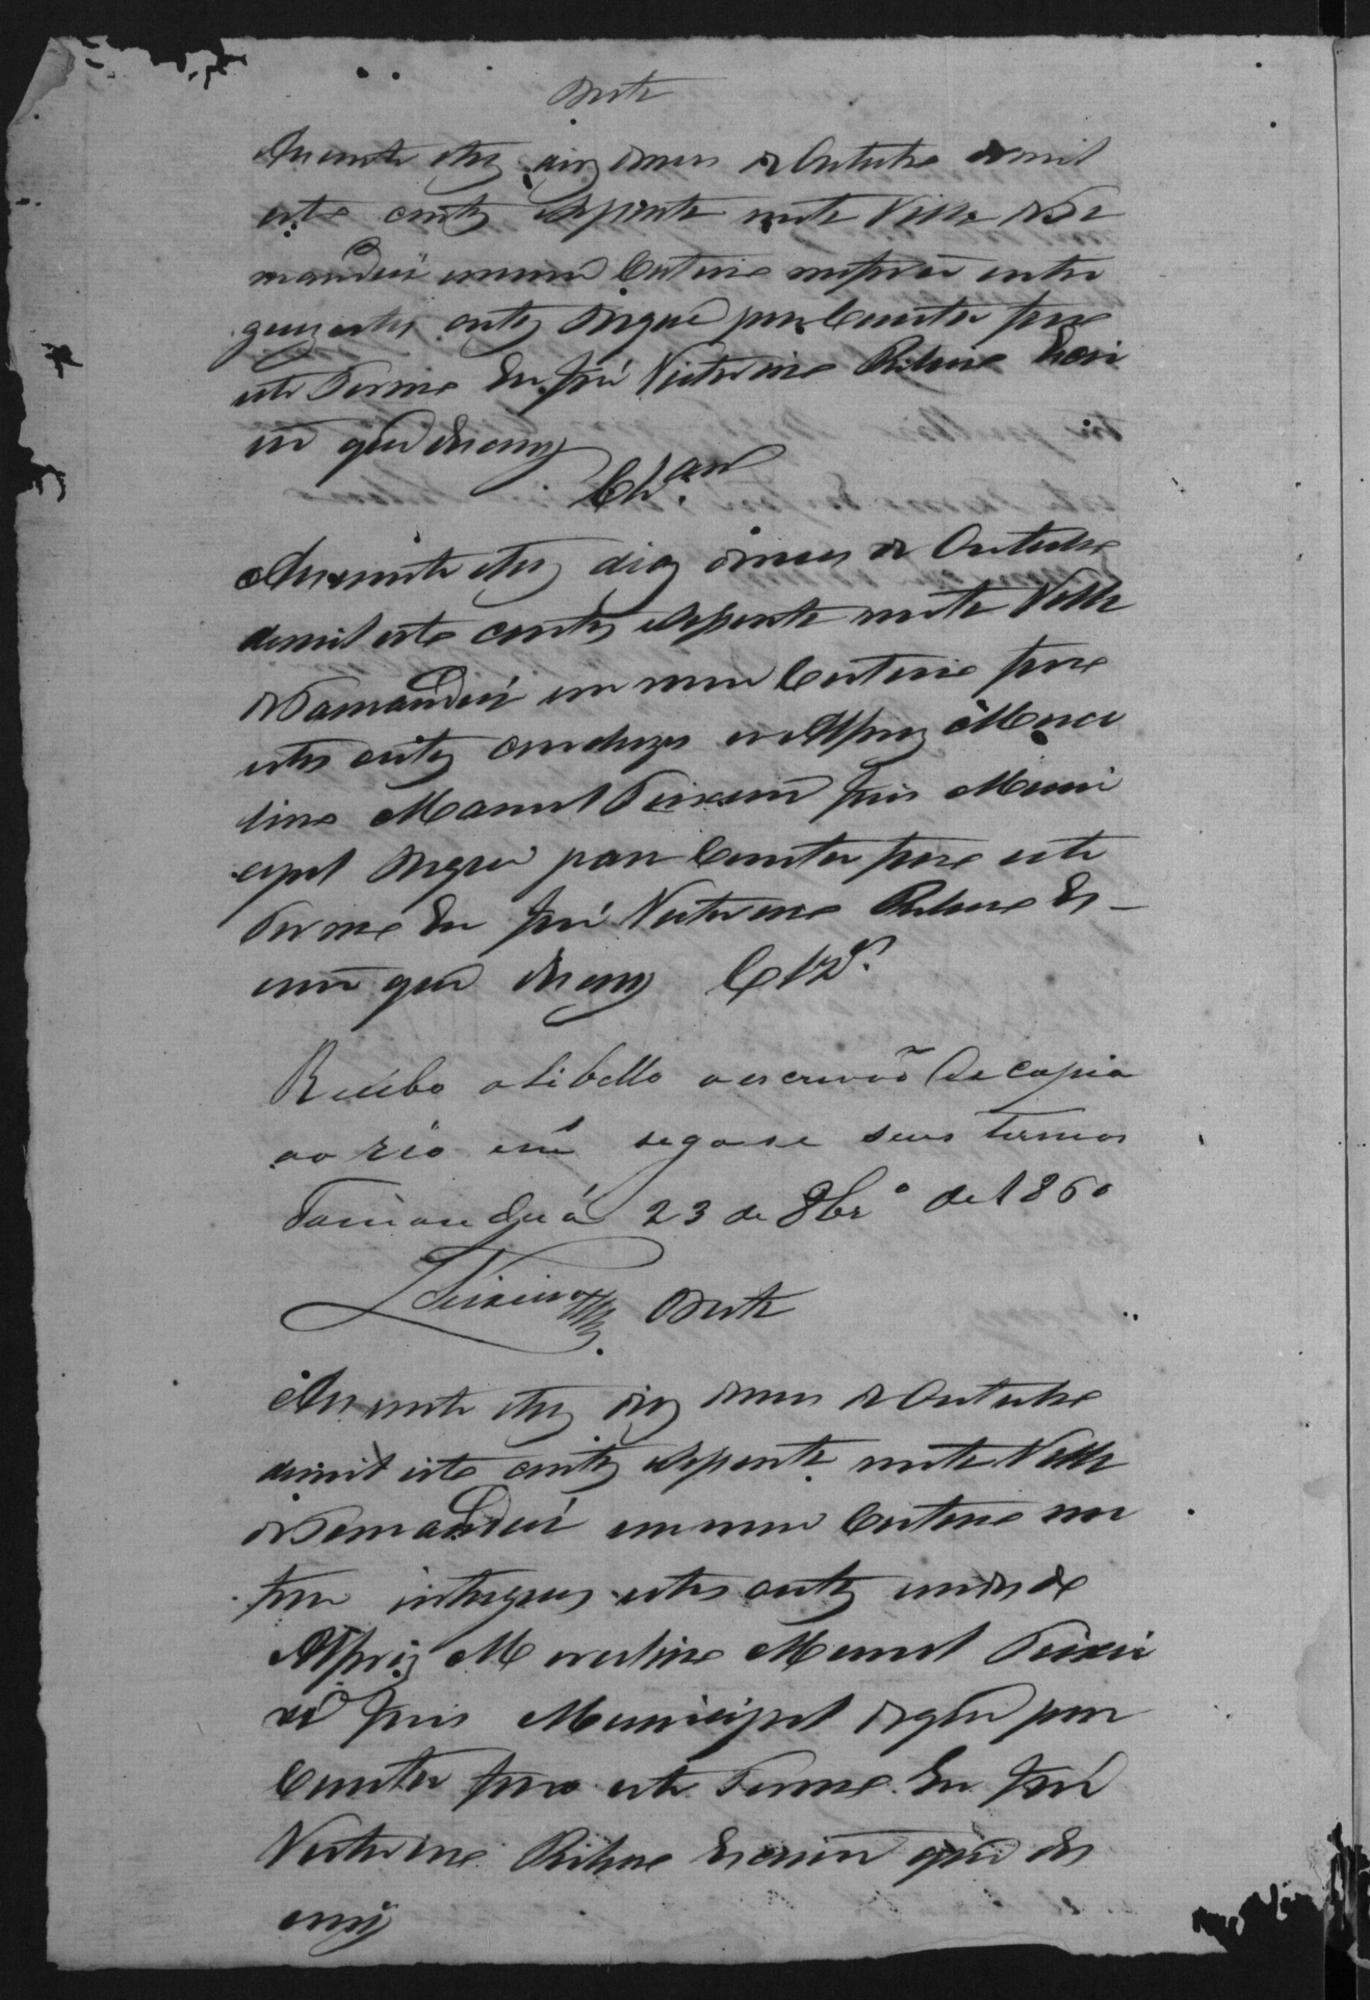 Data
Aos vinte etres dias domes de Outubro demil
oito centos esepenta nesta Villa deTa
manduá emmeu Cartorio mefoi entre
gues estes autos doque para Constar faço
este Termo Eu José Victorino Ribeiro Escri
vão que escrevy
Clz.am
Aos vinte etres dias domes de Outubro
demil oito centos esepenta nesta Villa
deTamanduá em meu Cartorio faço
estes autos concluzos aoAlferes Marce
lino Manoel Teixeira Juis Muni
cipal doque para Constar faço este
Termo Eu José Victorino Ribeiro Es-
crivão que escrevy Clz.
Recebo olibello oescrivão De copia
ao réo e segase seus termos
Tamanduá 23 de 8br.o de 1860
Teixeira Data
Aos vinte etres dias domes de Outubro
demil oito centos esepenta nesta Villa
deTamanduá emmeu Cartorio me
forão entregues estes autos
Alferes Marcelino Manoel Teixei
ra Juis Municipal doque para
Constar faço este Termo Eu José
Victorino Ribeiro Escrivão que es
crevy